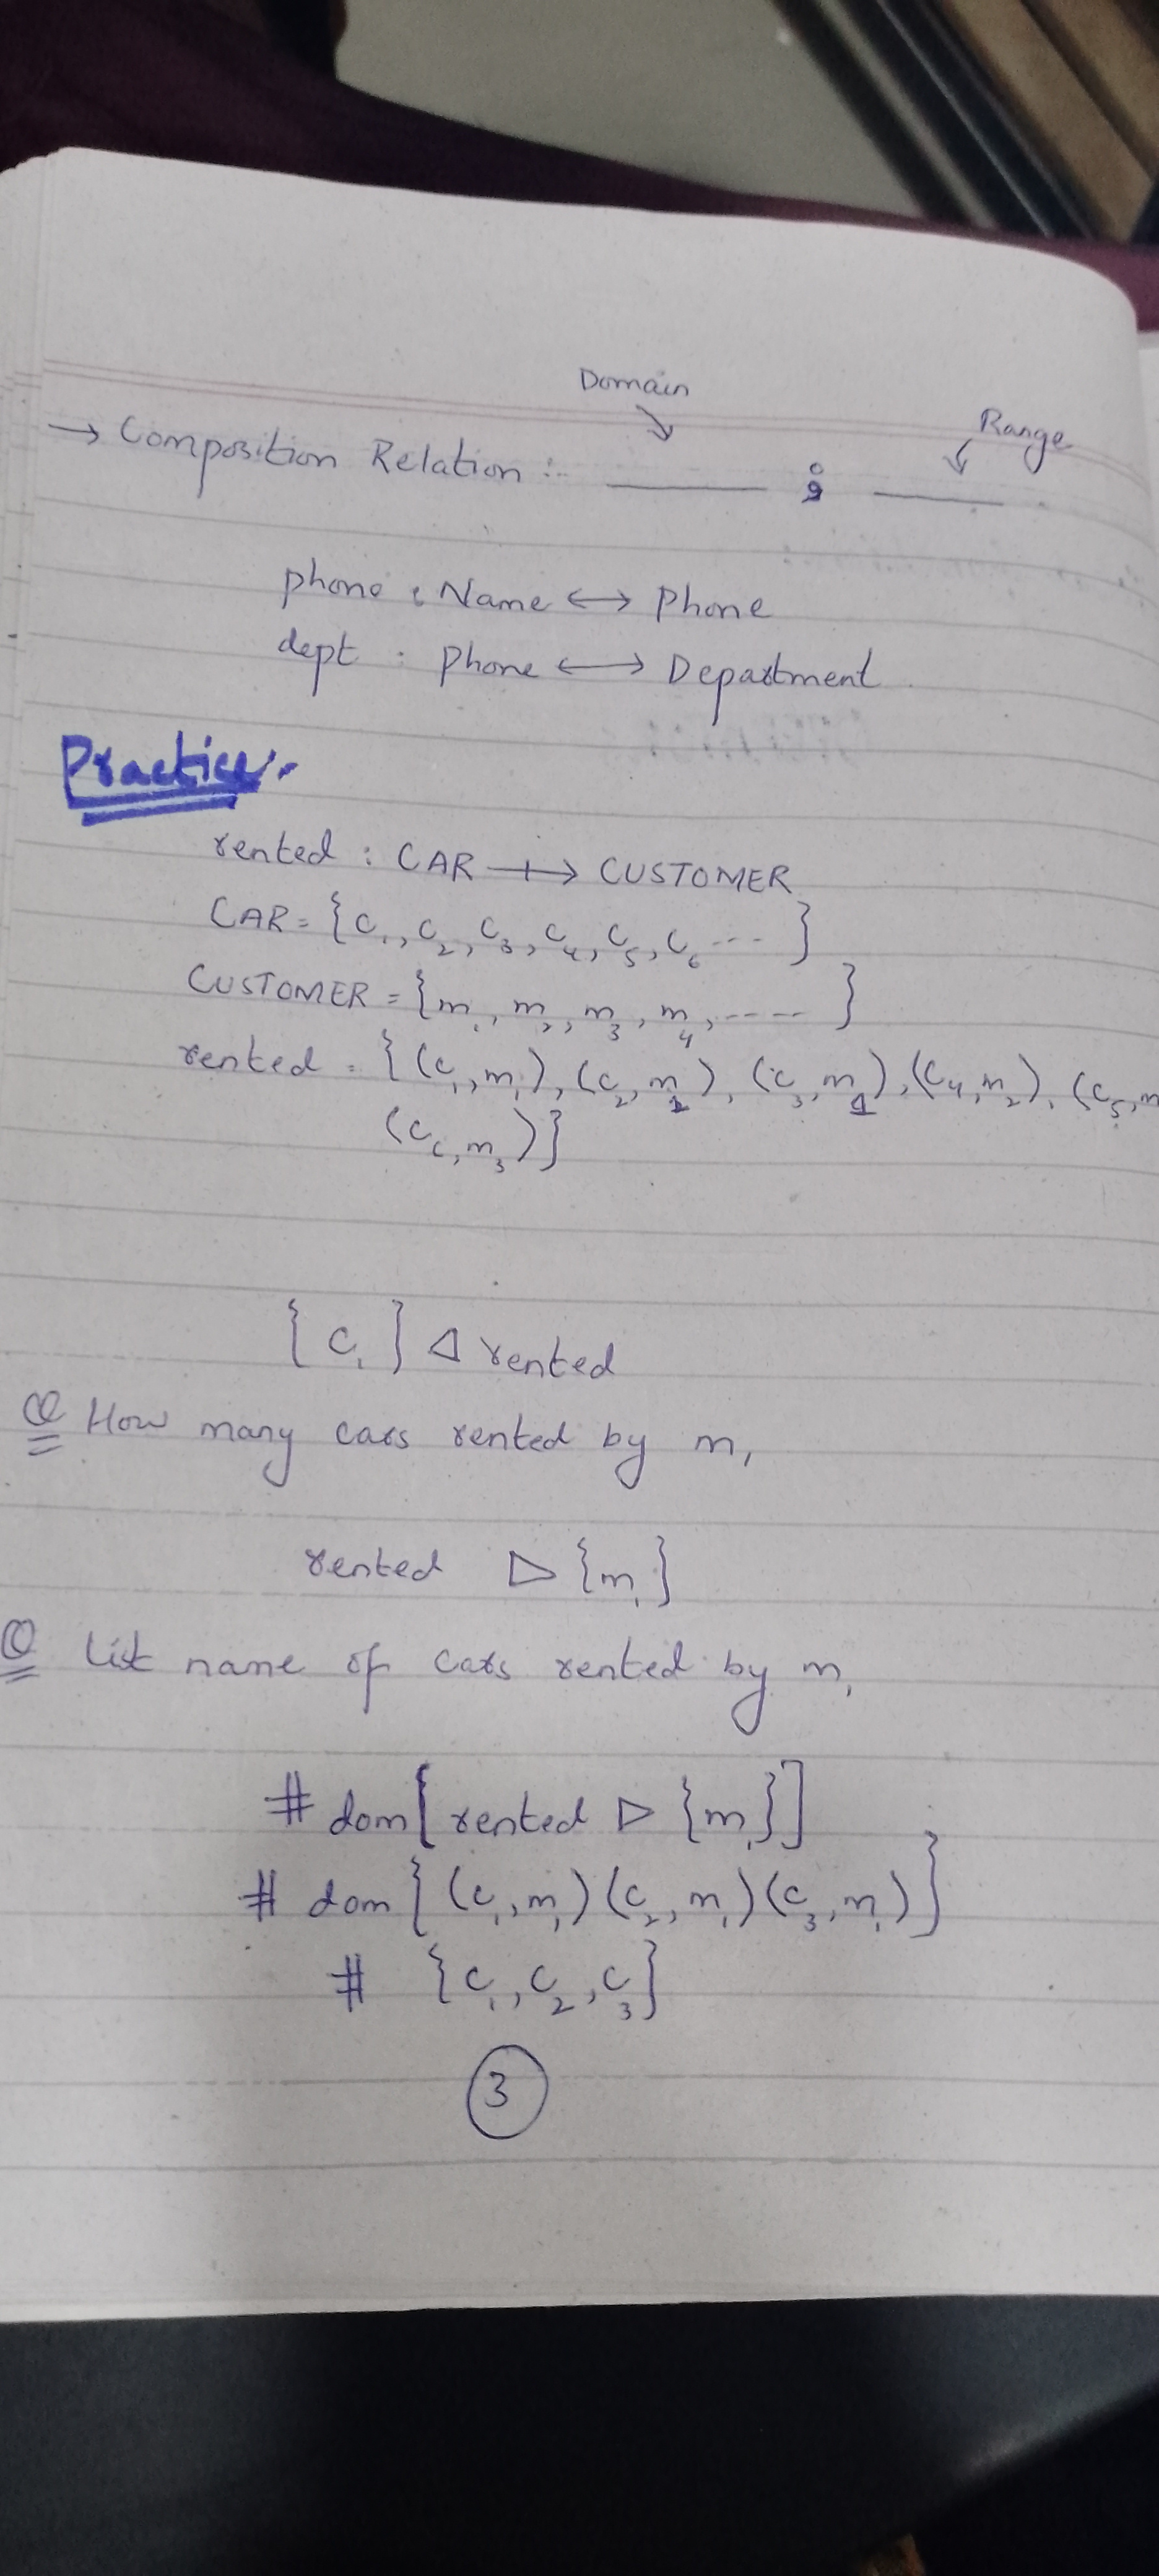 Domain
Range
→ Composition Relation :- ______ ⨾ ______
phone : Name ↔ Phone
dept : Phone ↔ Department
Practice:-
rented : CAR ⇸ CUSTOMER
CAR = {c₁, c₂, c₃, c₄, c₅, c₆ --- }
CUSTOMER = {m₁, m₂, m₃, m₄, ---- }
rented = { (c₁, m₁), (c₂, m₁), (c₃, m₁), (c₄, m₂), (c₅, m
(c₆, m₃)}
{c₁} ◁ rented
Q How many cars rented by m₁
rented ▷ {m₁}
Q List name of cars rented by m₁
# dom[rented ▷ {m₁}]
# dom{(c₁, m₁)(c₂, m₁)(c₃, m₁)}
# {c₁, c₂, c₃}
3